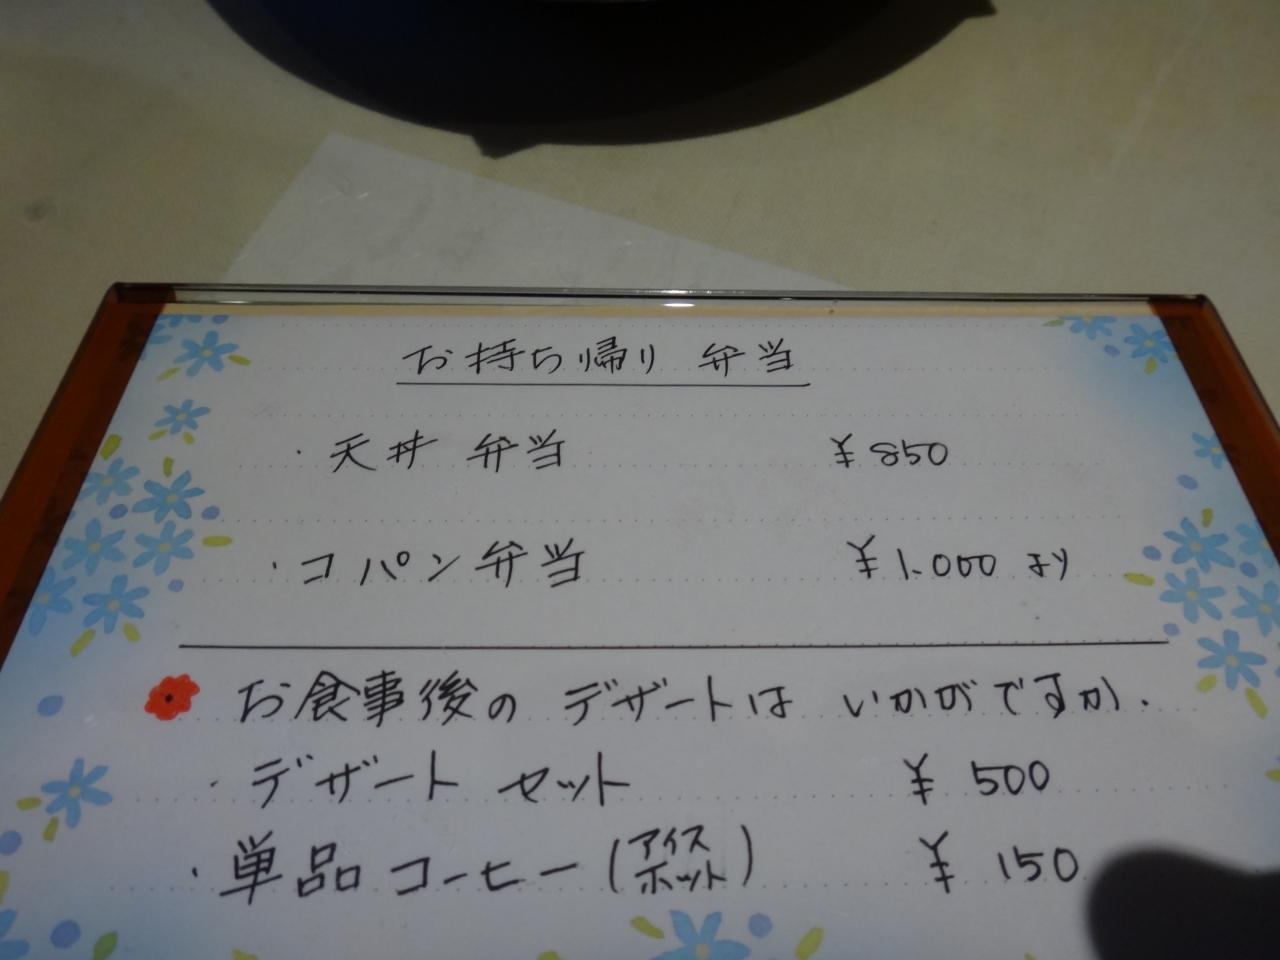 お持ち帰り 弁当
・天丼 弁当 ¥850
・コパン弁当 ¥1.000 より
お食事後の デザートは いかがですか.
・デザート セット ¥ 500
・単品 コーヒー(アイス ホット) ¥ 150